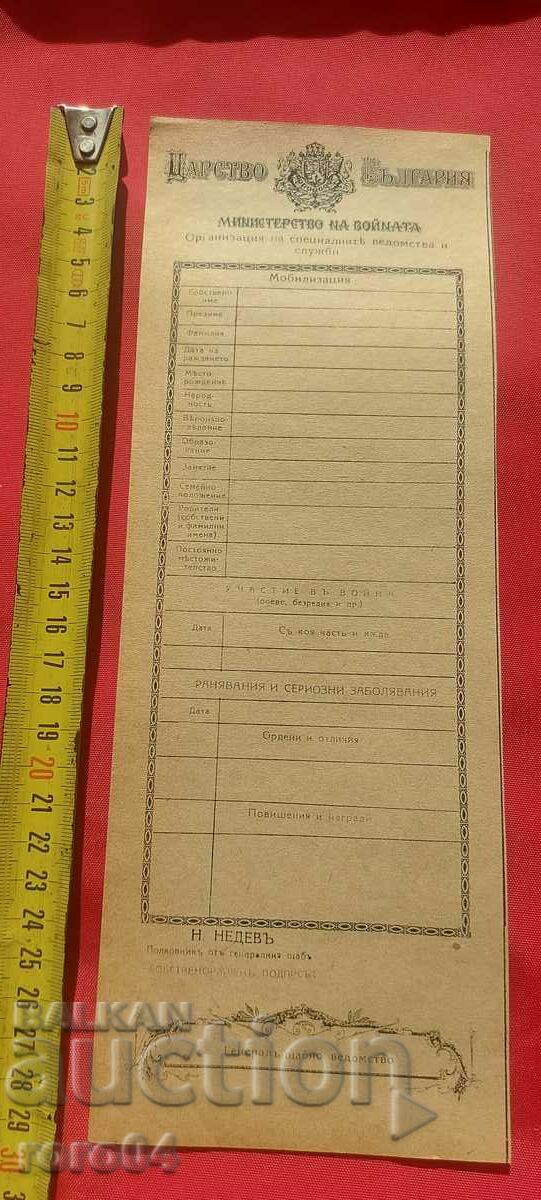 Царство България
Министерство на войната
Организация на специалнитѣ ведомства и
служби
Мобилизация
Собствено
име
Презиме
Фамилия
Дата на
раждането
Мѣсто
рождение
Народ-
ность
Вѣроизпо-
вѣдание
Образо-
вание
Занятие
Семейно
положение
Родители
(собствени
и фамилни
имена)
Постоянно
мѣстожи-
телство
УЧАСТИЕ ВЪ ВОЙНИ
(боеве, безредия и др.)
Дата
Съ коя часть и кѫде
РАНЯВАНИЯ И СЕРИОЗНИ ЗАБОЛЯВАНИЯ
Дата
Ордени и отличия
Повишения и награди
Н. НЕДЕВЪ
Полковникъ отъ генералния щабъ
СОБСТВЕНОРѪЧЕНЪ ПОДПИСЪ:
Генералъ щабно ведомство
BALKAN
auction
roro04
2
3
4
5
6
7
8
9
10
11
12
13
14
15
16
17
18
19
20
21
22
23
24
25
26
27
28
29
30
3